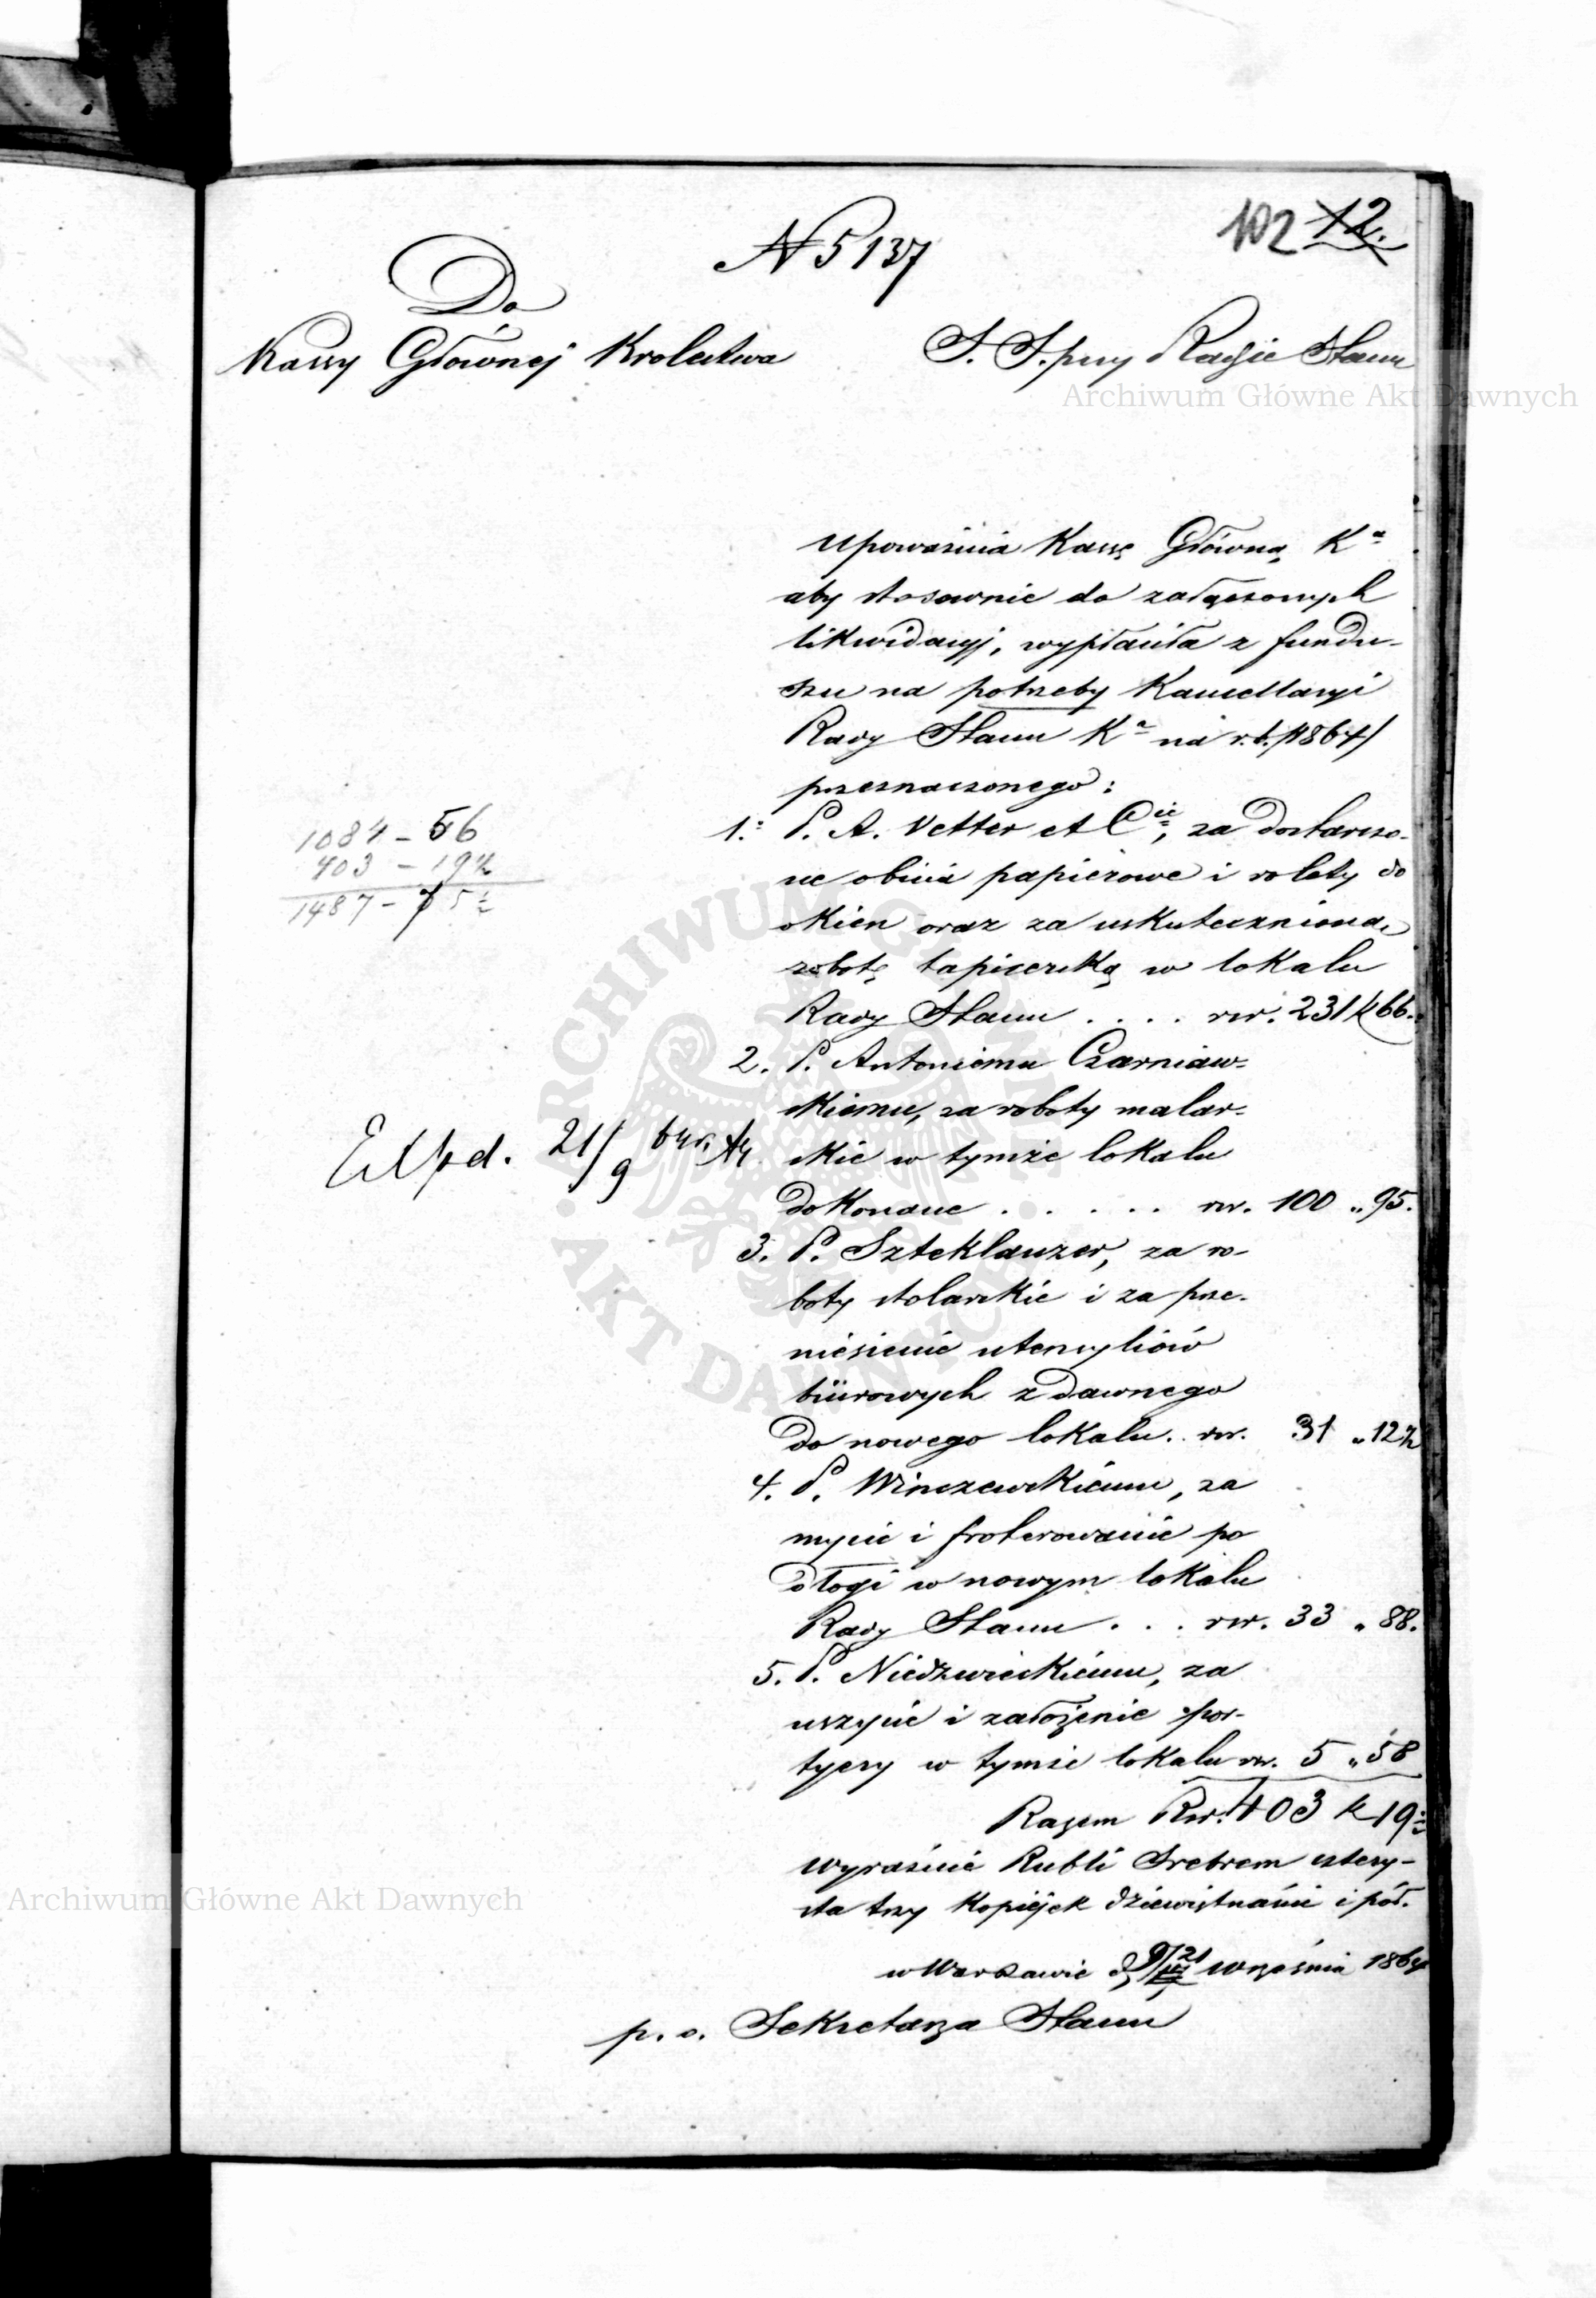 102 12.
N 5137
Do
Kassy Głównej Krolestwa
S. S. przy Radzie Stanu
Archiwum Główne Akt Dawnych
Upoważnia Kassę Główną Kª
aby stosownie do załączonych
likwidacyj, wypłaciła z fundu-
szu na potrzeby Kancellaryi
Rady Stanu Kª na r. b. /1864/
przeznaczonego:
1. P. A. Vetter et Cie, za dostarczo-
ne obicia papierowe i rolety do
okien oraz za uskutecznioną
robotę tapicerską w lokalu
Rady Stanu . . . . rsr. 231 k 66.
2. P. Antoniemu Czarniaw-
skiemu, za roboty malar-
skie w tymże lokalu
dokonane . . . . . rsr. 100 „ 95.
3. P. Szteklauzer, za ro-
boty stolarskie i za prze-
niesienie utensyliów
biurowych z dawnego
do nowego lokalu . rsr. 31 „ 12½
4. P. Winczewskiemu, za
mycie i froterowanie po
dłogi w nowym lokalu
Rady Stanu . . . rsr. 33 „ 88.
5. P. Niedzwieckiemu, za
uszycie i założenie por-
tyery w tymże lokalu rsr. 5 „ 58
Razem Rsr. 403 k 19½
wyraźnie Rubli Srebrem cztery-
sta trzy kopiejek dziewiętnaście i pół.
w Warszawie d. 9/21 Września 1864
p. o. Sekretarza Stanu
1084 - 56
403 - 19½
1487 - 75½
Exped. 21/9 64 r.
ARCHIWUM GŁÓWNE
AKT DAWNYCH
Archiwum Główne Akt Dawnych